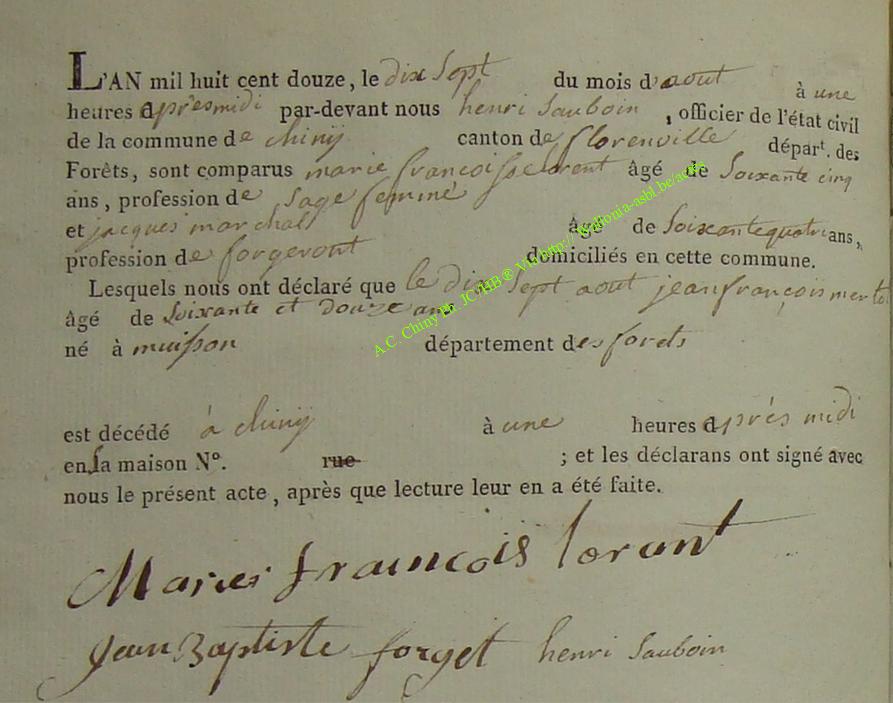 L'AN mil huit cent douze, le dix Sept du mois d'aout à une
heures après midi par-devant nous henri Sauboin, officier de l'état civil
de la commune de chiny canton de florenville départ. des
Forêts, sont comparus marie françoisse lorent âgé de Soixante cinq
ans, profession de sage femme
et jacques marchal âgé de Soixante quatre ans,
profession de forgeront domiciliés en cette commune.
Lesquels nous ont déclaré que le dix Sept aout jean françois
âgé de Soixante et douze ans
né à département des forets
est décédé à chiny à une heures après midi
en sa maison N°. rue ; et les déclarans ont signé avec
nous le présent acte, après que lecture leur en a été faite.
Marie françois lorant
Jean Baptiste forget henri Sauboin
A.C. Chiny Ph. JC/HB® Via http://Wallonia-asbl.be/actes